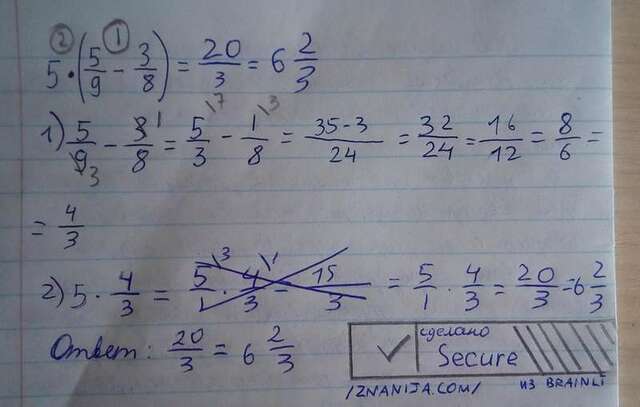 ② ①
5·(5/9 - 3/8) = 20/3 = 6 2/3
1) 5/9 3 - 3/8 1 = 5/3 \7 - 1/8 \3 = 35-3/24 = 32/24 = 16/12 = 8/6 =
= 4/3
2) 5 · 4/3 = 5/1 \3 · 4/3 \1 = 15/3 = 5/1 · 4/3 = 20/3 = 6 2/3
Ответ: 20/3 = 6 2/3
сделано
Secure
/ZNANIJA.COM/ из BRAINLI